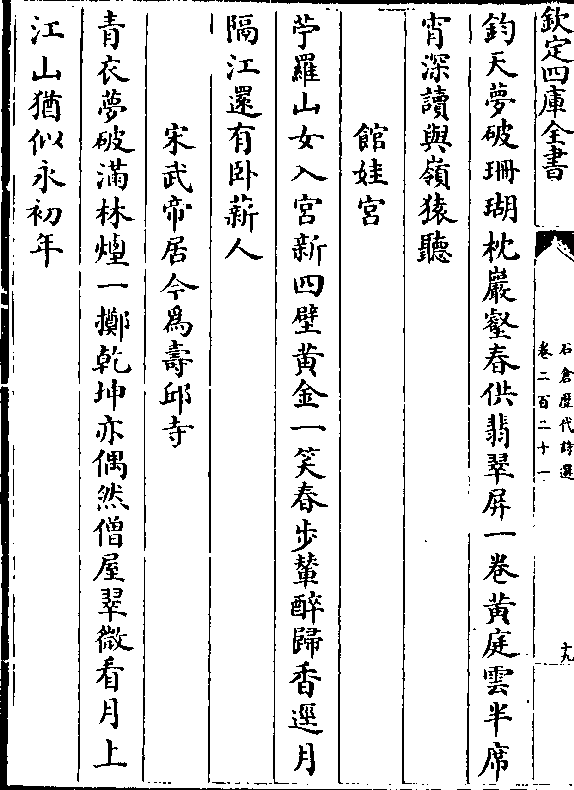 欽定四庫全書
石倉歴代詩選
卷二百二十一
十九
鈞天夢破珊瑚枕巖壑春供翡翠屏一卷黄庭雲半席
宵深讀與嶺猿聽
館娃宮
苧羅山女入宮新四壁黄金一笑春步輦醉歸香逕月
隔江還有卧薪人
宋武帝居今爲壽邱寺
青衣夢破滿林煙一擲乾坤亦偶然僧屋翠微看月上
江山猶似永初年